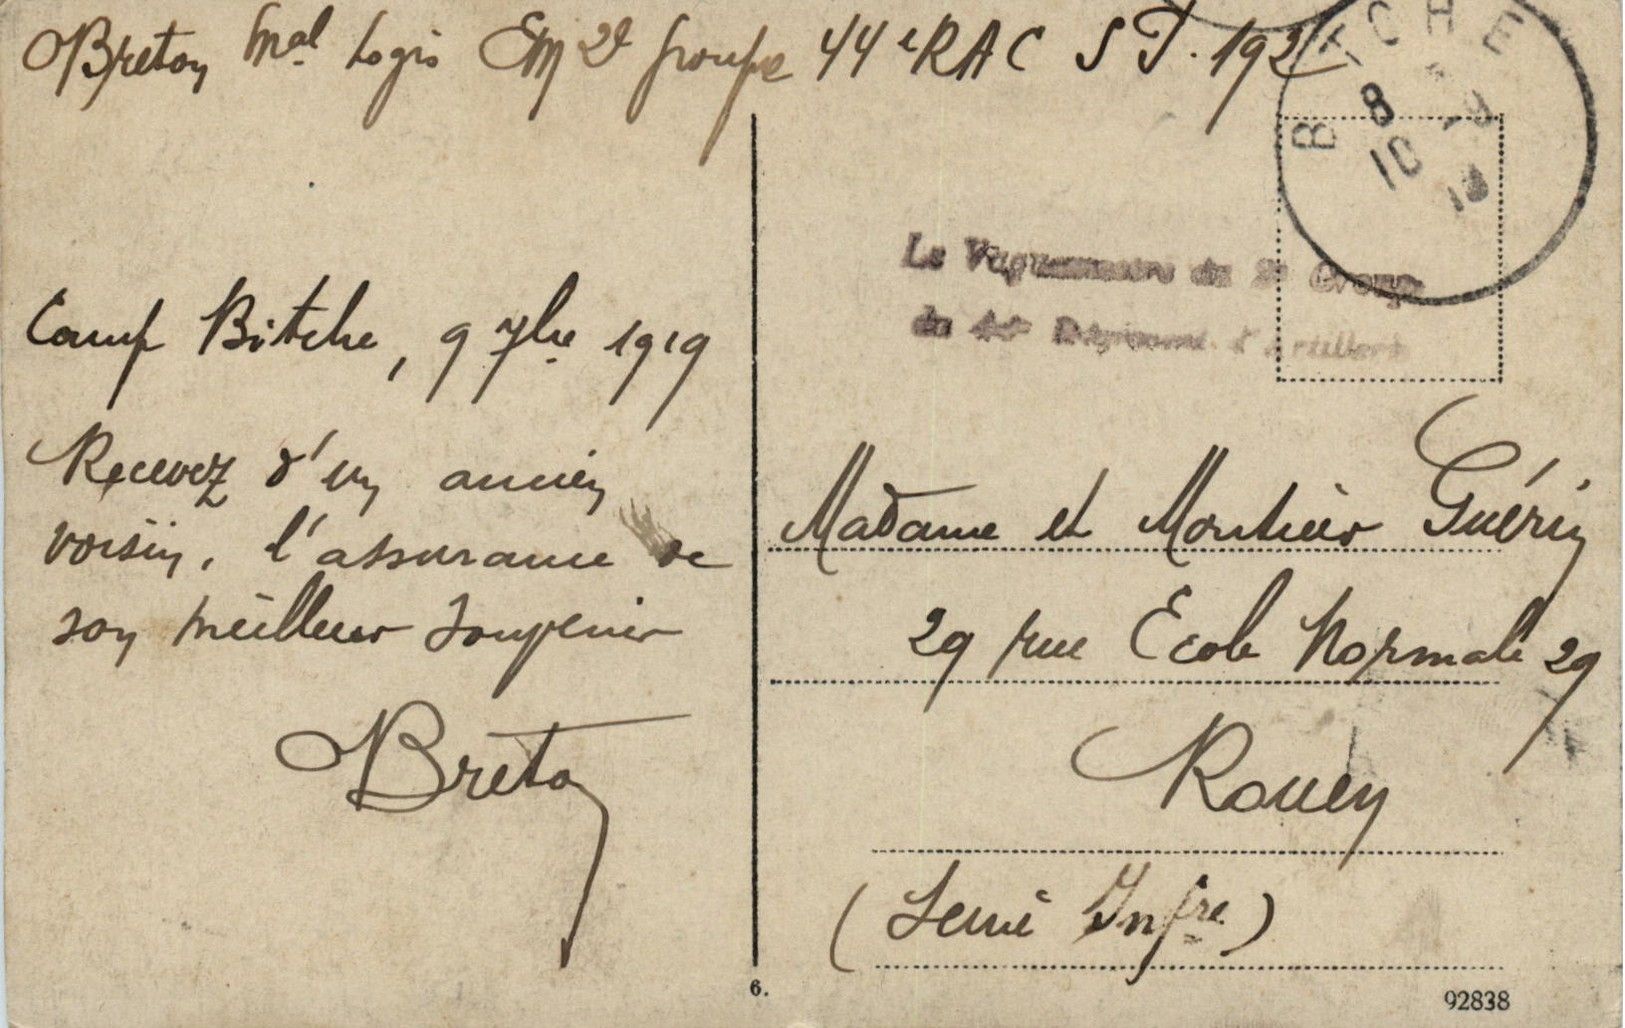 Breton Mal Logis EM 2e groupe 44e RAC S P. 192
BITCHE
8
10
19
Le Vaguemestre du 2e Groupe
du 44e Régiment d'Artillerie
Camp Bitche, 9 7bre 1919
Recevez d'un ancien
voisin, l'assurance de
son meilleur souvenir
Breton
Madame et Monsieur Guérin
29 rue Ecole Normale 29
Rouen
(Seine Infre)
6.
92838